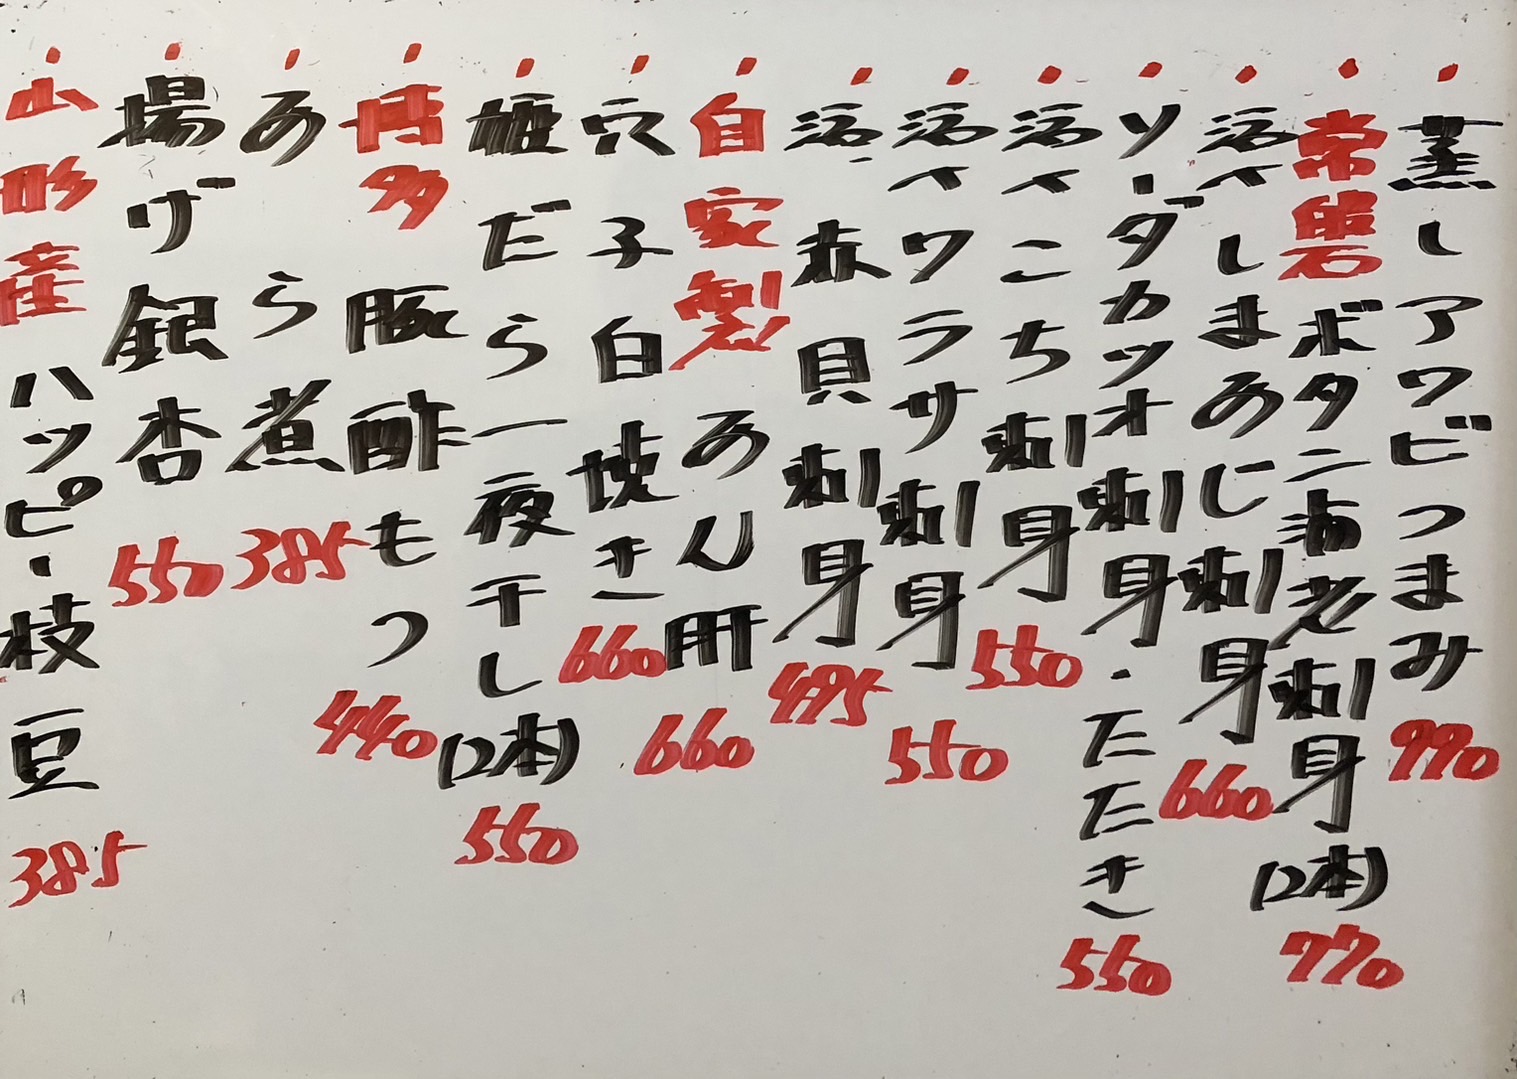 ・蒸しアワビつまみ 990
・常磐ボタン海老刺身(2本) 770
・活〆しまあじ刺身 660
・ソーダカツオ刺身・たたき 550
・活〆こち刺身 550
・活〆ワラサ刺身 550
・活赤貝刺身 495
・自家製あん肝 660
・穴子白焼き 660
・姫だら一夜干し(2本) 550
・博多豚酢もつ 440
・あら煮 385
・揚げ銀杏 550
・山形産ハッピー枝豆 385